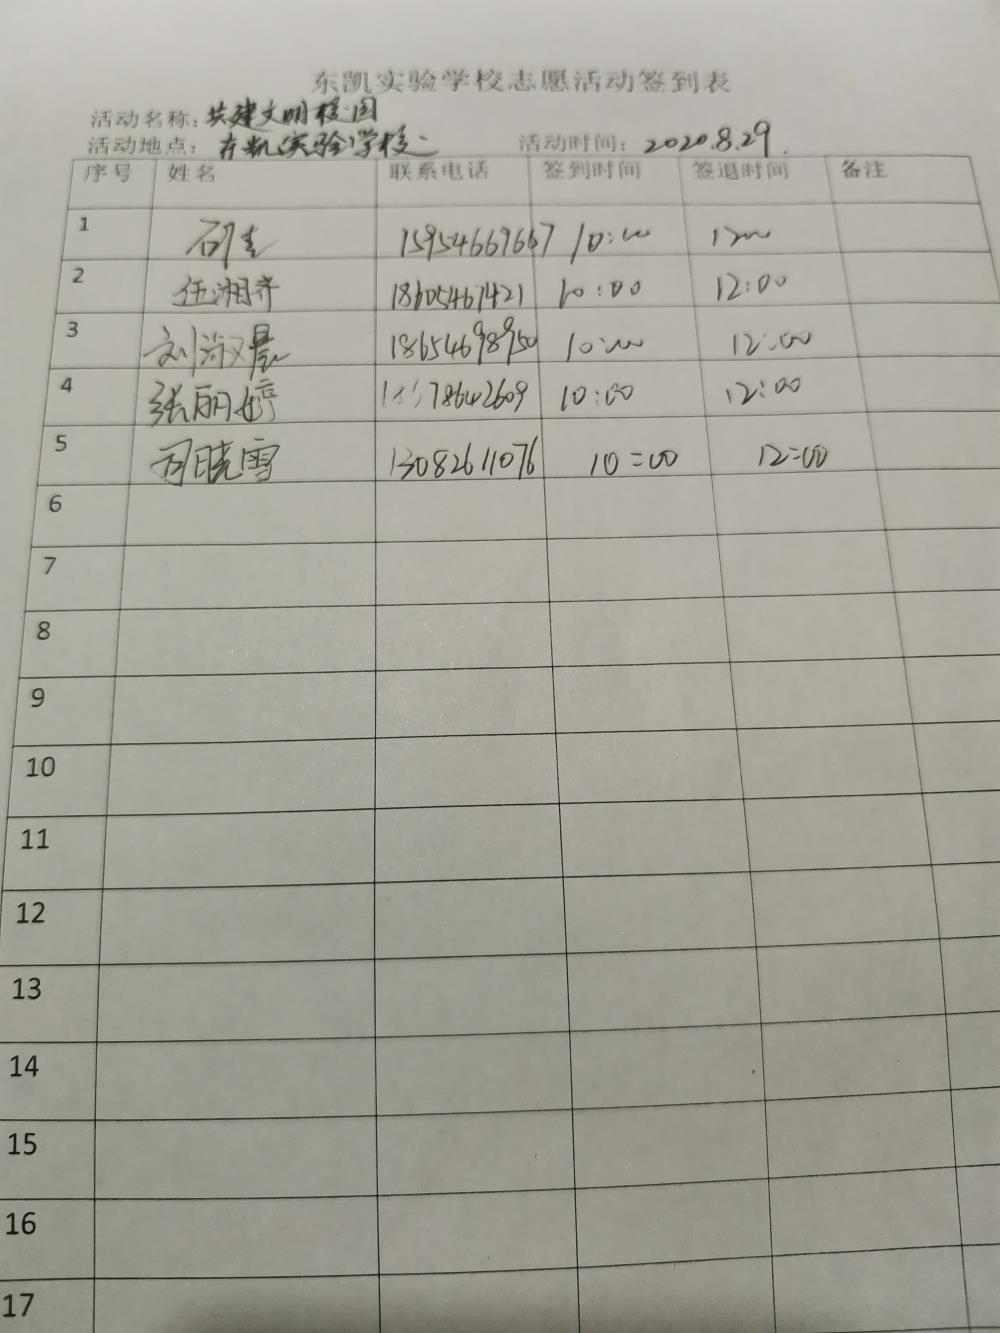 东凯实验学校志愿活动签到表
活动名称：共建文明校园
活动地点：东凯实验学校 活动时间：2020.8.29.
序号 姓名 联系电话 签到时间 签退时间 备注
1 15954669667 10:00 1200
2 任湘齐 18605461421 10:00 12:00
3 刘淑晨 18654698950 10:00 12:00
4 张丽婷 10:00 12:00
5 司晓雪 13082611076 10:00 12:00
6
7
8
9
10
11
12
13
14
15
16
17